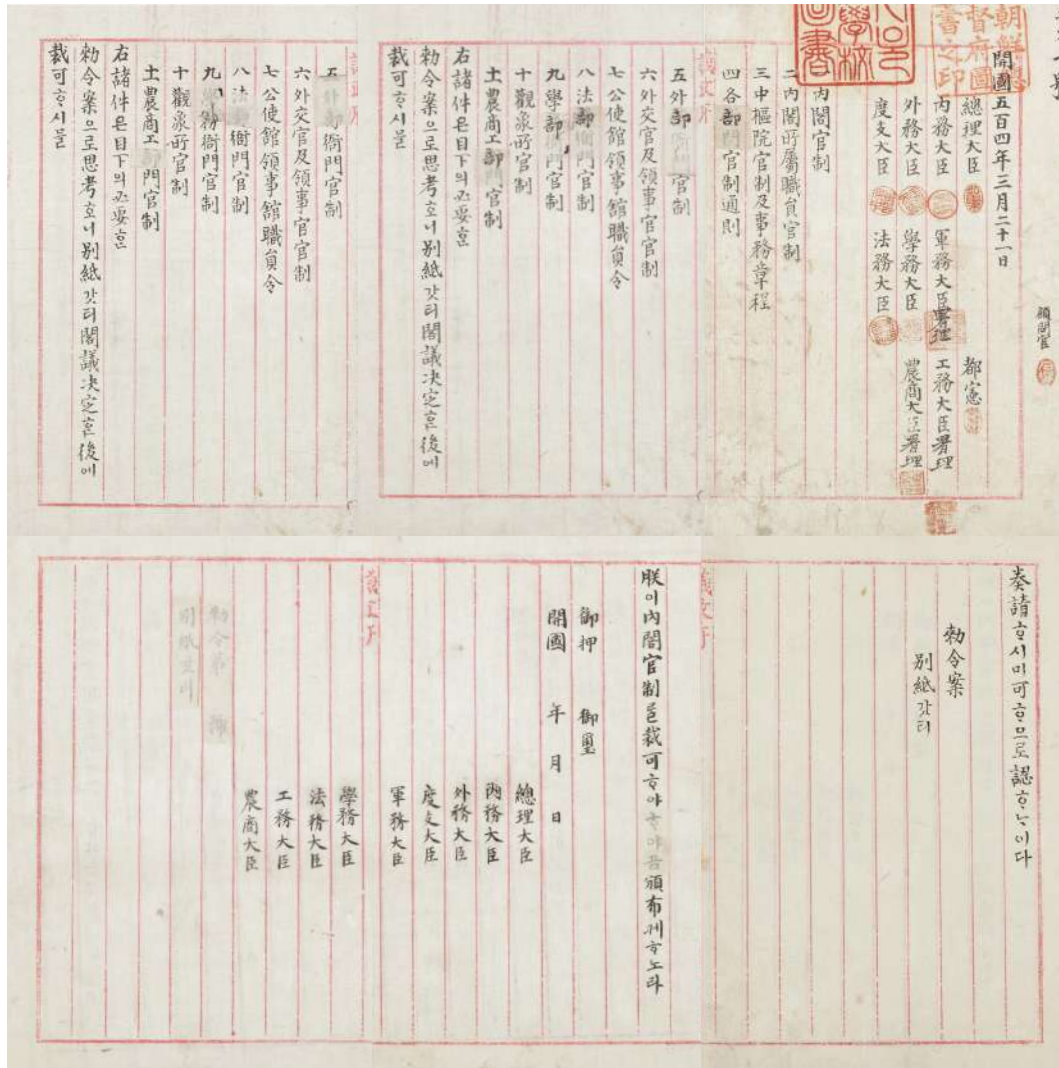 開國五百四年三月二十一日
總理大臣
內務大臣
外務大臣
度支大臣
軍務大臣署理
學務大臣
法務大臣
都憲
工務大臣署理
農商大臣署理
顧問官
朝鮮總督府圖書之印
內閣官制
二內閣所屬職員官制
三中樞院官制及事務章程
四各部官制通則
五外部官制
六外交官及領事官官制
七公使館領事館職員令
八法部衙門官制
九學部衙門官制
十觀象所官制
十一農商工部門官制
右諸件은目下의必要한
勅令案으로思考호니別紙갓티閣議決定한後에
裁可하시믈
衙門官制
六外交官及領事官官制
七公使館領事館職員令
八法務衙門官制
九學務衙門官制
十觀象所官制
十一農商工部門官制
右諸件은目下의必要한
勅令案으로思考호니別紙갓티閣議決定한後에
裁可하시믈
奏請하시미可하므로認하ᄂ이다
勅令案
別紙갓티
議政府
朕이內閣官制를裁可하야頒布케하노라
御押 御璽
開國 年 月 日
總理大臣
內務大臣
外務大臣
度支大臣
軍務大臣
議政府
學務大臣
法務大臣
工務大臣
農商大臣